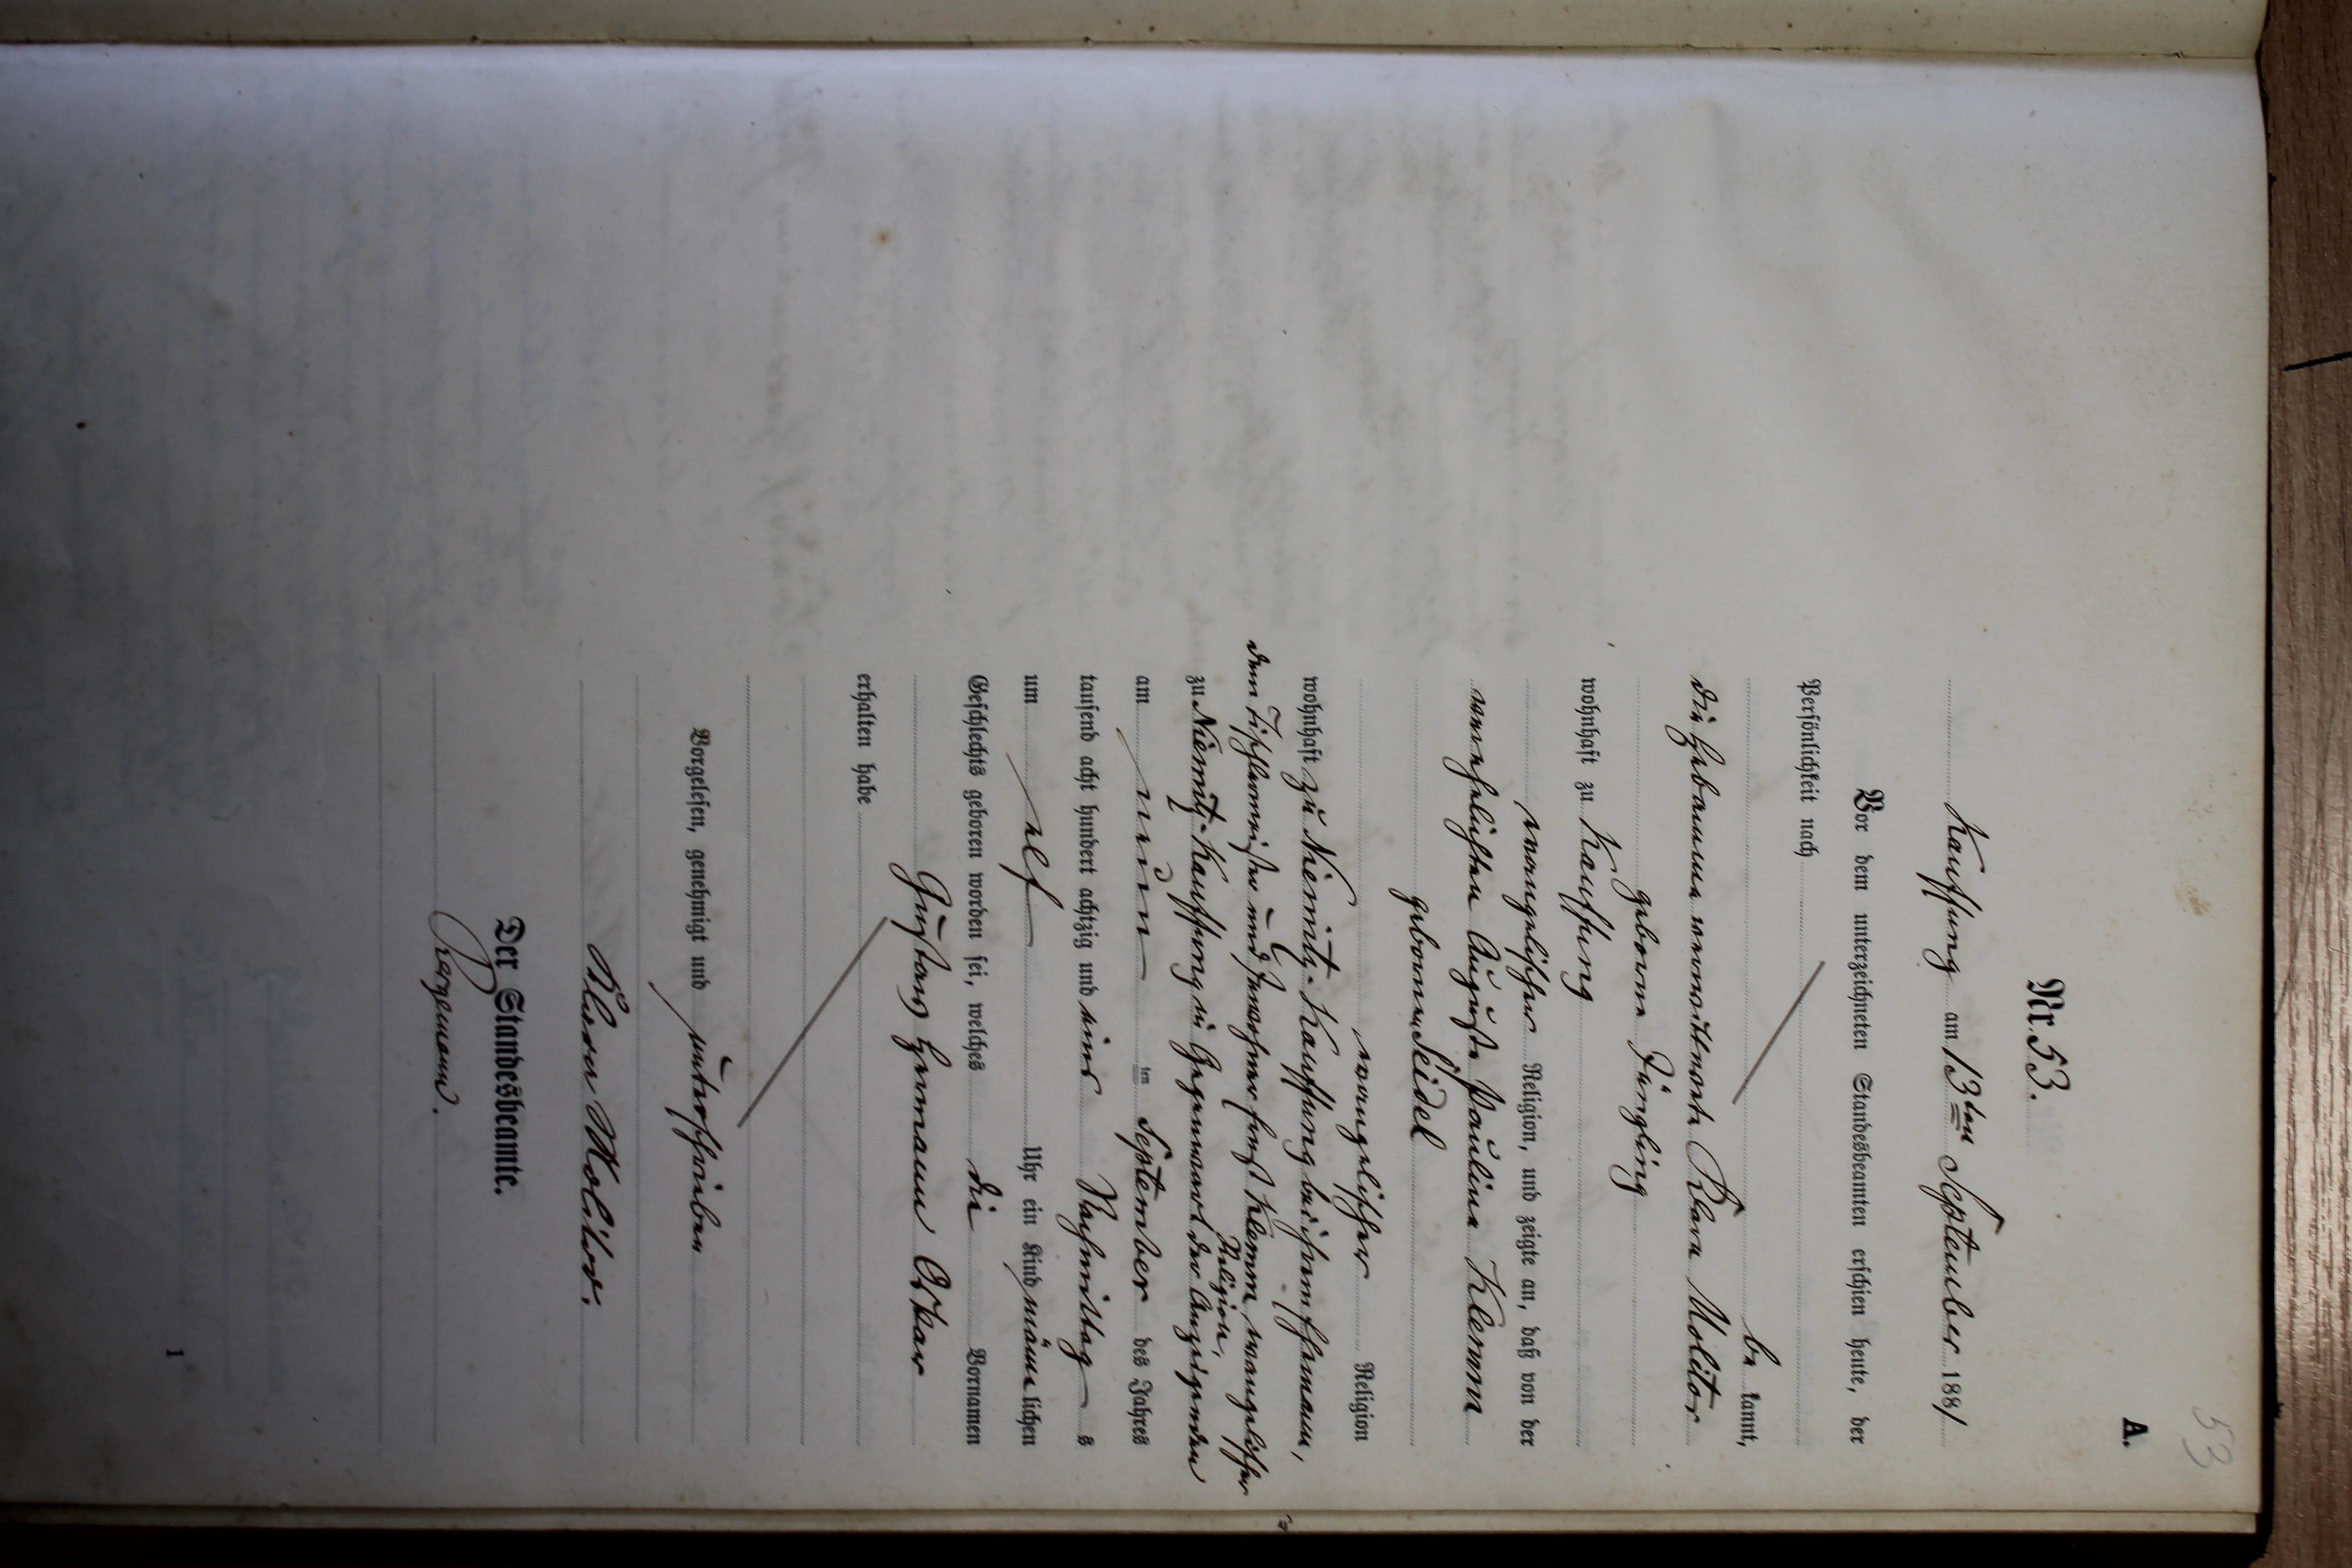 53
A.
Nr. 53.
Kauffung am 13ten September 1881
Vor dem unterzeichneten Standesbeamten erschien heute, der
Persönlichkeit nach
be kannt,
die Hebamme verwittwete Klara Molitor
geborne Jüngling
wohnhaft zu Kauffung
evangelischer Religion, und zeigte an, daß von der
verehelichten Auguste Pauline Klemm
geborenen Seidel
evangelischer Religion
wohnhaft zu Niemitz-Kauffung bei ihrem Ehemann,
dem Tischlermeister und Inwohner Ernst Klemm, evangelischer
Religion,
zu Niemitz-Kauffung in Gegenwart der Anzeigenden
am neun ten September des Jahres
tausend acht hundert achtzig und eins Nachmittag s
um elf Uhr ein Kind männ lichen
Geschlechts geboren worden sei, welches die Vornamen
Gustav Hermann Oskar
erhalten habe
Vorgelesen, genehmigt und unterschrieben
Klara Molitor.
Der Standesbeamte.
1